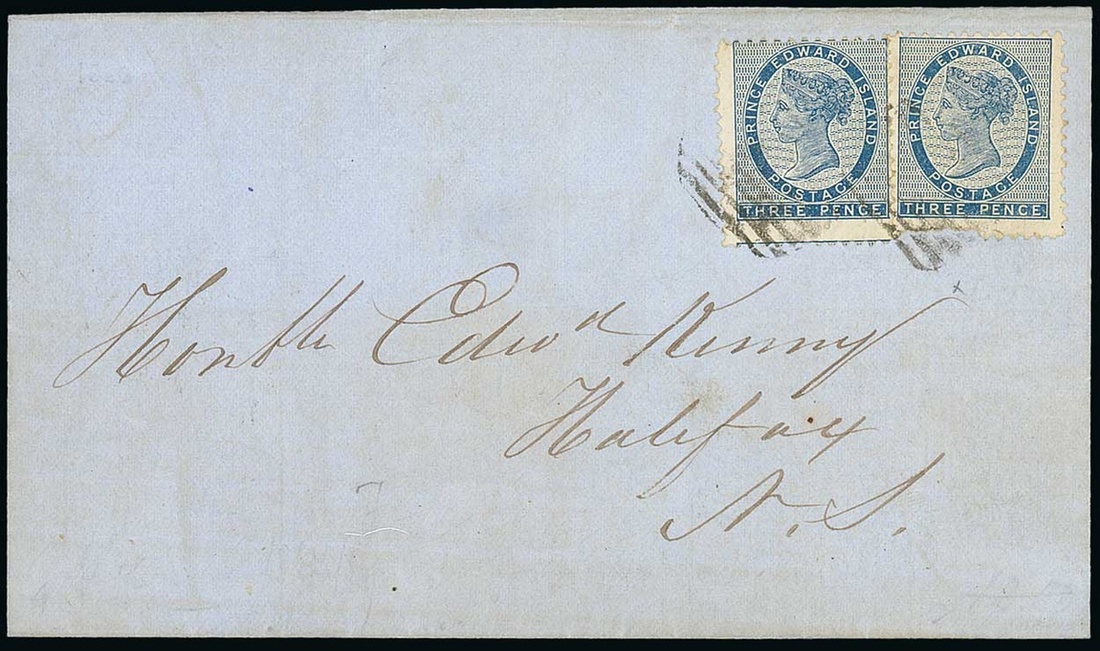 PRINCE EDWARD ISLAND
POSTAGE
THREE PENCE
PRINCE EDWARD ISLAND
POSTAGE
THREE PENCE
Honble Edwd Kenny
Halifax
N.S.